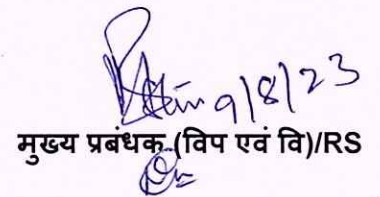 9/8/23
मुख्य प्रबंधक (विप एवं वि)/RS